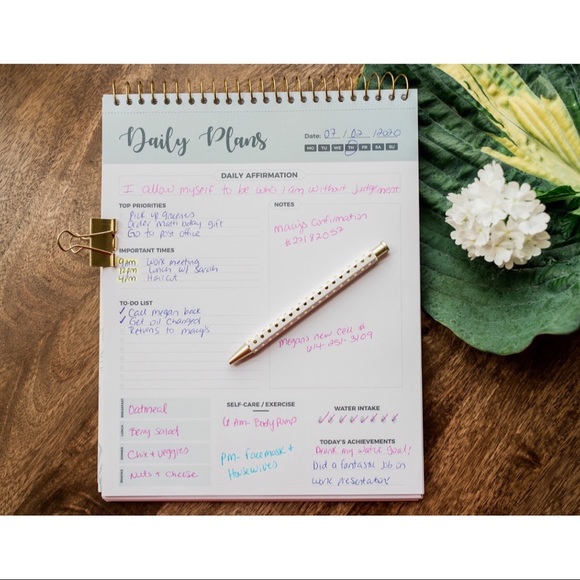 Daily Plans
Date: 07/02/2020
MO TU WE TH FR SA SU
DAILY AFFIRMATION
I allow myself to be who I am without judgement
TOP PRIORITIES
Pick up glasses
Order matti bday gift
Go to post office
IMPORTANT TIMES
9am work meeting
12pm Lunch w/ Sarah
4pm Haircut
TO-DO LIST
✓ Call megan back
✓ Get oil changed
Returns to macy's
NOTES
macy's confirmation
#22182052
Megan's new cell #
BREAKFAST
Oatmeal
LUNCH
Berry salad
DINNER
Chix + veggies
SNACKS
Nuts + cheese
SELF-CARE / EXERCISE
6 Am- Body Pump
PM- Facemask +
Housewives
WATER INTAKE
✓ ✓ ✓ ✓ ✓ ✓ ✓ ✓
TODAY'S ACHIEVEMENTS
Drank my water goal!
Did a fantastic job on
work presentation!